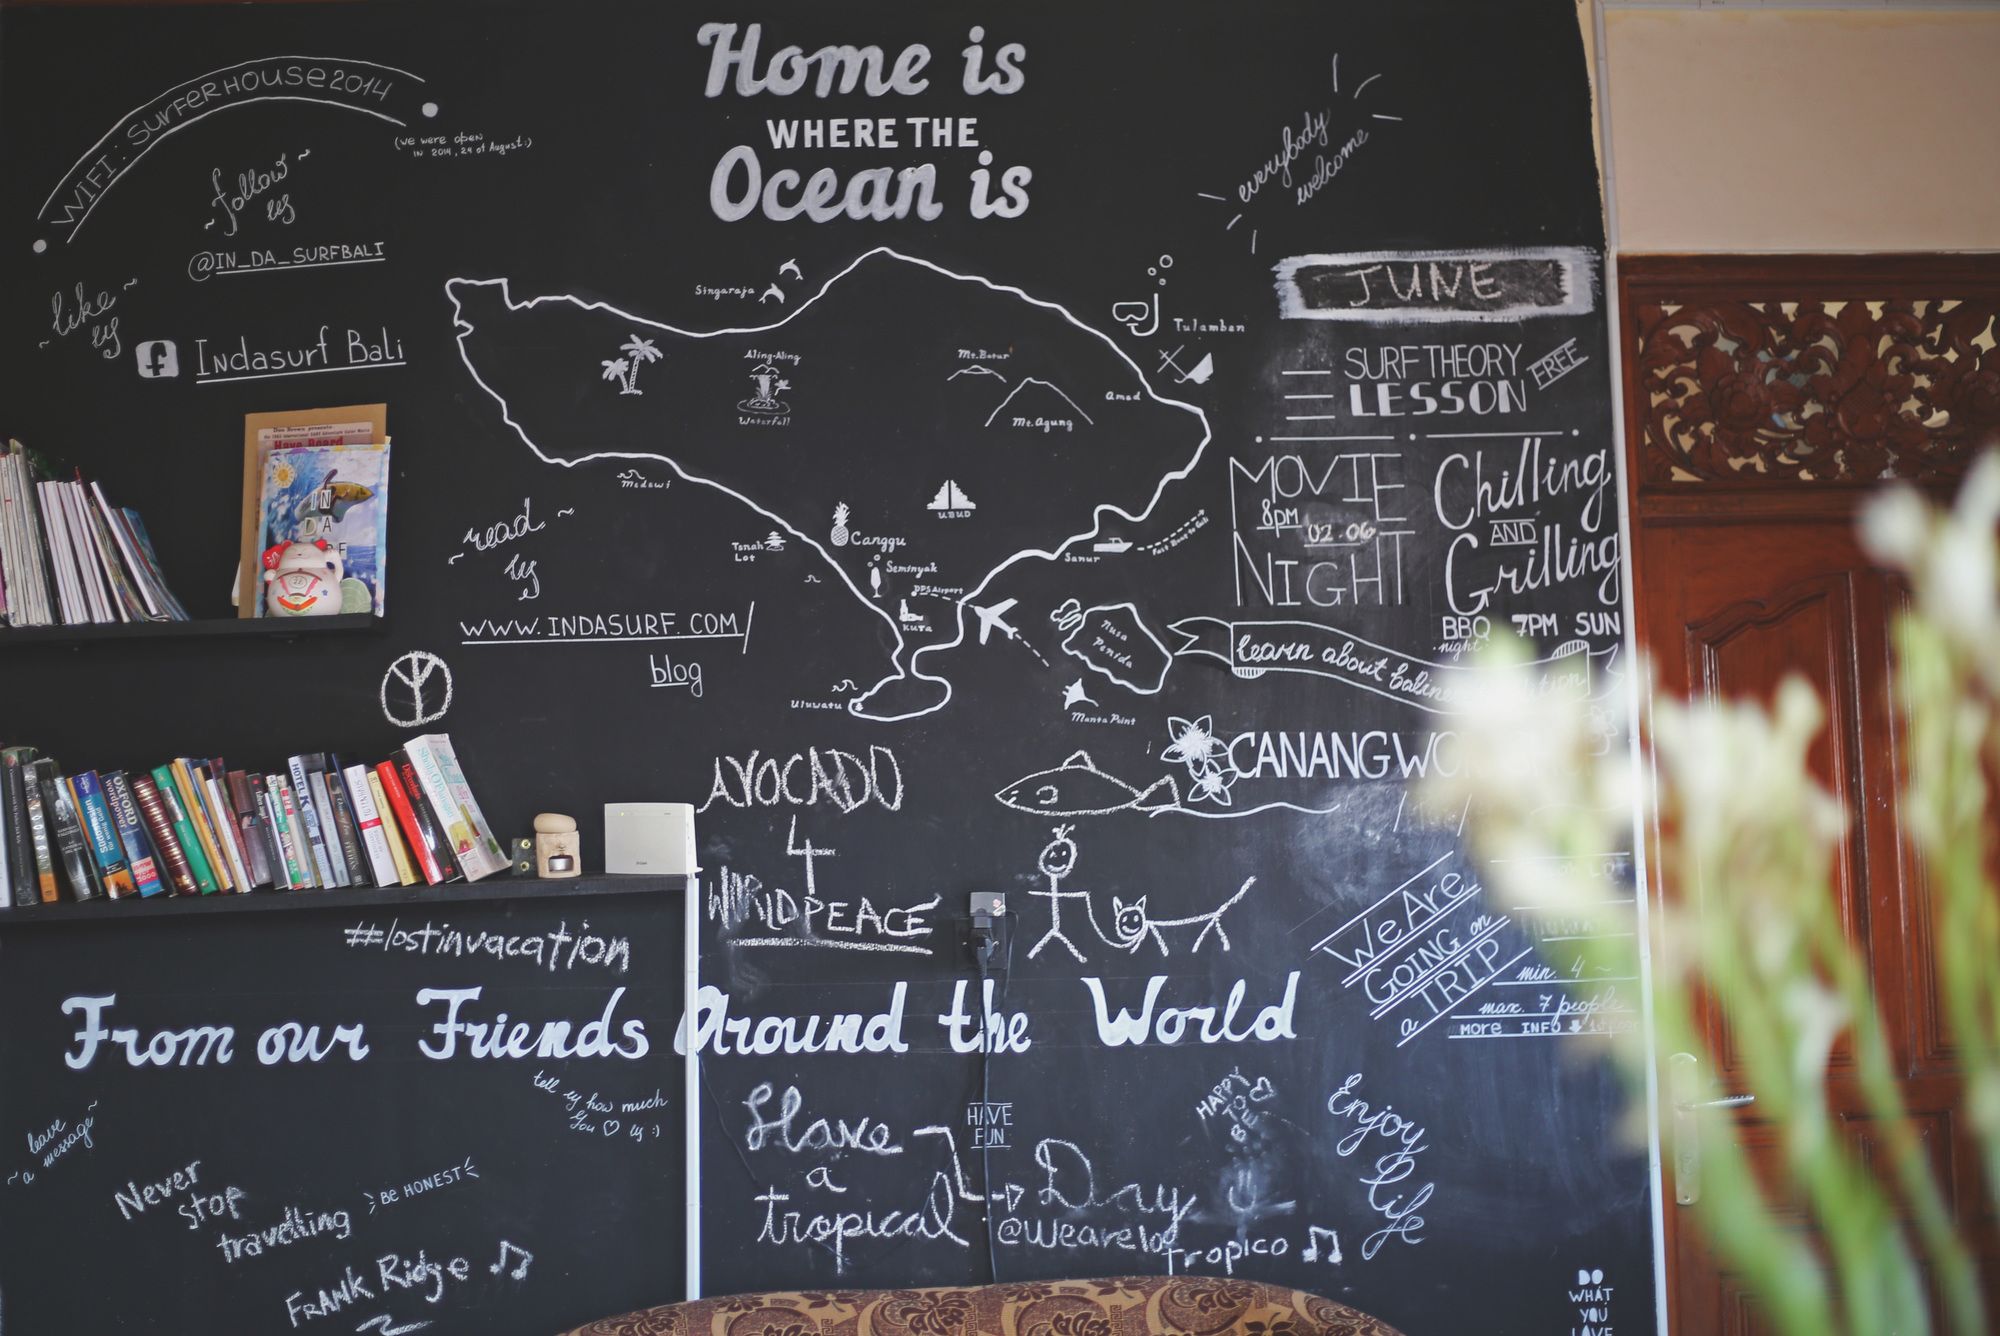 Home is
WHERE THE
Ocean is
WIFI: SURFERHOUSE2014
(we were open
in 2014, 24 of August:)
~follow~
us
@IN_DA_SURFBALI
~like~
us
f Indasurf Bali
~read~
us
WWW.INDASURF.COM/
blog
everybody
welcome
Singaraja
Tulamben
Aling-Aling
Waterfall
Mt.Batur
Mt.Agung
Amed
Medewi
UBUD
Canggu
Tanah
Lot
Seminyak
DPS Airport
KUTA
Sanur
Nusa
Penida
Uluwatu
Manta Point
JUNE
SURF THEORY
LESSON
FREE
MOVIE
8pm 02.06
NIGHT
Chilling
AND
Grilling
BBQ 7PM SUN
night
learn about
CANANG
We Are
GOING on
a TRIP
min. 4 ~
max. 7 people
MORE INFO
HOTEL K
OXFORD
wordpower
IN
DA
AVOCADO
4
WORLD PEACE
#lostinvacation
From our Friends Around the World
tell us how much
you ♡ us :)
~leave
a message~
Never
stop
travelling
BE HONEST
FRANK Ridge
Have
a
tropical
Day
HAVE
FUN
HAPPY
TO
BE
Tropico
Enjoy
life
DO
WHAT
YOU
LOVE